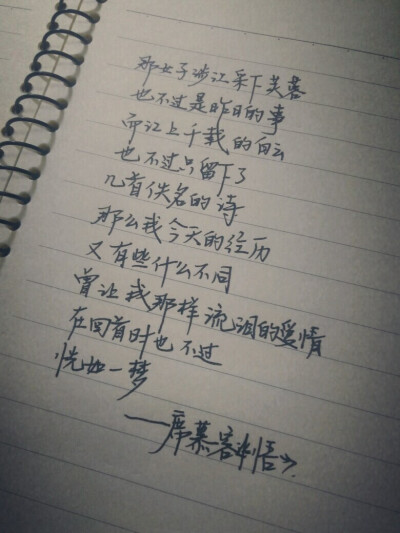 那女子涉江采下芙蓉
也不过是昨日的事
而江上千载的白云
也不过只留下了
几首佚名的诗
那么我今天的经历
又有些什么不同
曾让我那样流泪的爱情
在回首时也不过
恍如一梦
——席慕容《悟》